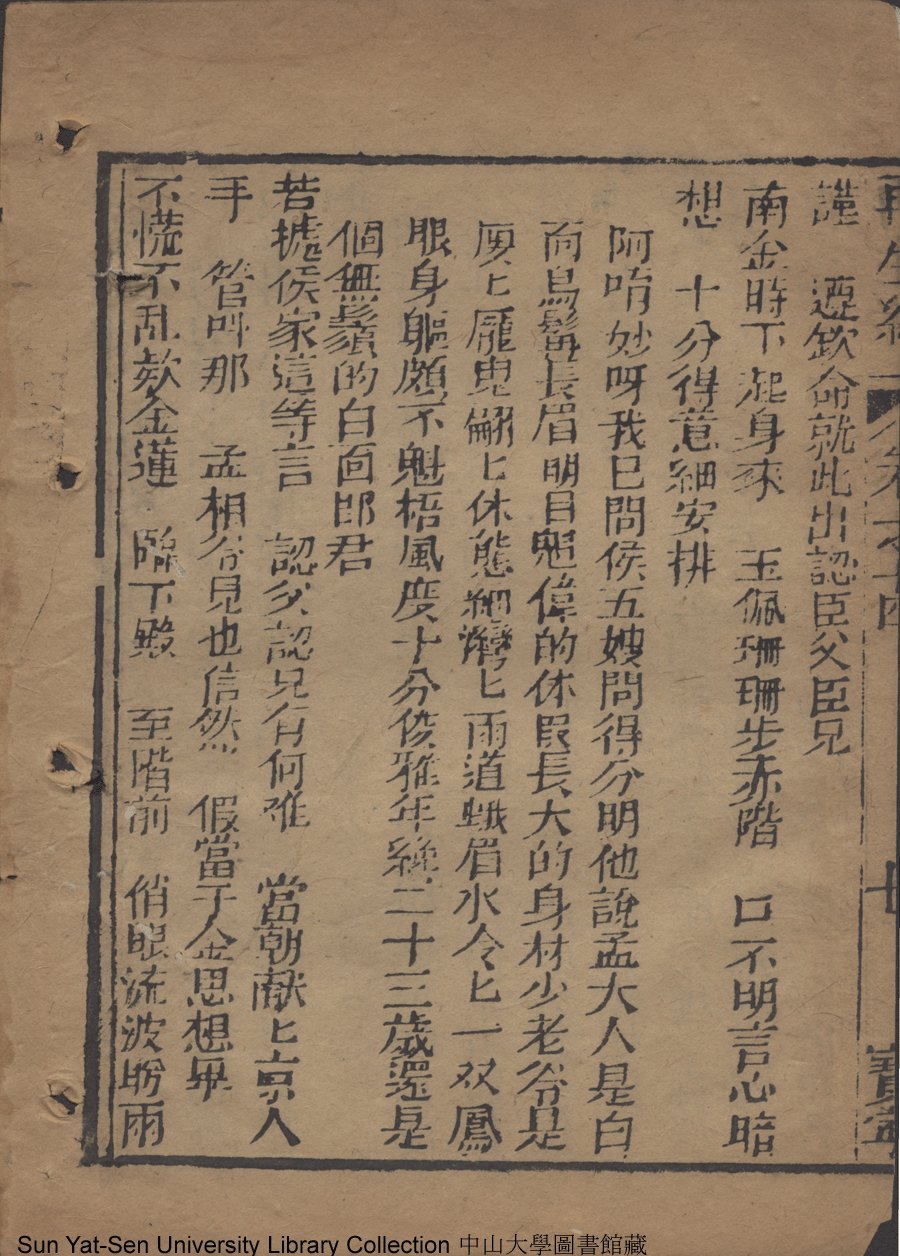 再生緣 卷之十四 七 寶寧
謹 遵欽命就此出認臣父臣兄
南金時下起身來 玉佩珊珊步赤階 口不明言心暗
想 十分得意細安排
阿唷妙呀我已問侯五嫂問得分明他說孟大人是白
面烏鬚長眉明目魁偉的休叚長大的身材少老爷是
匕龎皃翩匕休態細灣匕兩道蛾眉水令匕一双鳳
眼身軀頗不魁梧風度十分俊雅年終二十三歲還是
個無鬚須的白面郎君
若㨿侯家這等言 認父認兄有何难 當朝献匕京人
手 管呌那 孟相爷見也信然 假當于金思想畢
不慌不乱欸金蓮 臨下殿 至階前 俏眼流波盼兩
Sun Yat-Sen University Library Collection 中山大學圖書館藏